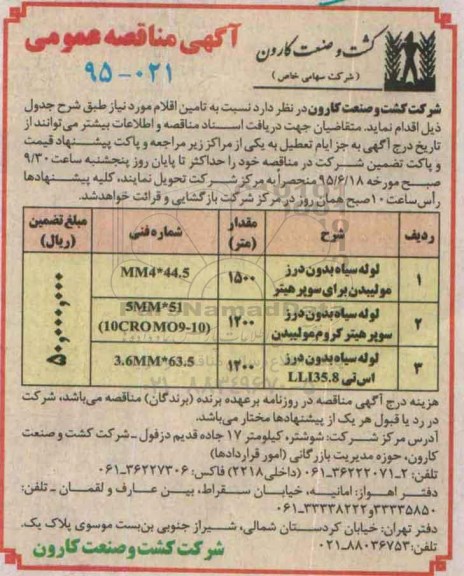 آگهی مناقصه عمومی
۹۵-۰۲۱
کشت و صنعت کارون
(شرکت سهامی خاص)
شرکت کشت و صنعت کارون در نظر دارد نسبت به تامین اقلام مورد نیاز طبق شرح جدول
ذیل اقدام نماید. متقاضیان جهت دریافت اسناد مناقصه و اطلاعات بیشتر می‌توانند از
تاریخ درج آگهی به جز ایام تعطیل به یکی از مراکز زیر مراجعه و پاکت پیشنهاد قیمت
و پاکت تضمین شرکت در مناقصه خود را حداکثر تا پایان روز پنجشنبه ساعت ۹/۳۰
صبح مورخه ۹۵/۶/۱۸ منحصراً به مرکز شرکت تحویل نمایند، کلیه پیشنهادها
رأس ساعت ۱۰ صبح همان روز در مرکز شرکت بازگشایی و قرائت خواهد شد.
ردیف شرح مقدار (متر) شماره فنی مبلغ تضمین (ریال)
۱ لوله سیاه بدون درز مولیبدن برای سوپر هیتر ۱۵۰۰ MM4*44.5
۲ لوله سیاه بدون درز سوپر هیتر کروم مولیبدن ۱۲۰۰ 5MM*51 (10CROMO9-10)
۳ لوله سیاه بدون درز اس تی LLI35.8 ۱۲۰۰ 3.6MM*63.5
۵۰,۰۰۰,۰۰۰
هزینه درج آگهی مناقصه در روزنامه برعهده برنده (برندگان) مناقصه می‌باشد، شرکت
در رد یا قبول هر یک از پیشنهادها مختار می‌باشد.
آدرس مرکز شرکت: شوشتر، کیلومتر ۱۷ جاده قدیم دزفول - شرکت کشت و صنعت
کارون، حوزه مدیریت بازرگانی (امور قراردادها)
تلفن: ۲-۳۶۲۲۲۰۷۱-۰۶۱ (داخلی ۲۲۱۸) فاکس: ۳۶۲۲۷۳۰۶-۰۶۱
دفتر اهواز: امانیه، خیابان سقراط، بین عارف و لقمان - تلفن:
۳۳۳۳۵۸۵۰ و ۳۳۳۳۸۲۲۲-۰۶۱
دفتر تهران: خیابان کردستان شمالی، شیراز جنوبی بن‌بست موسوی پلاک یک.
تلفن: ۸۸۰۳۶۷۵۳-۰۲۱
شرکت کشت و صنعت کارون